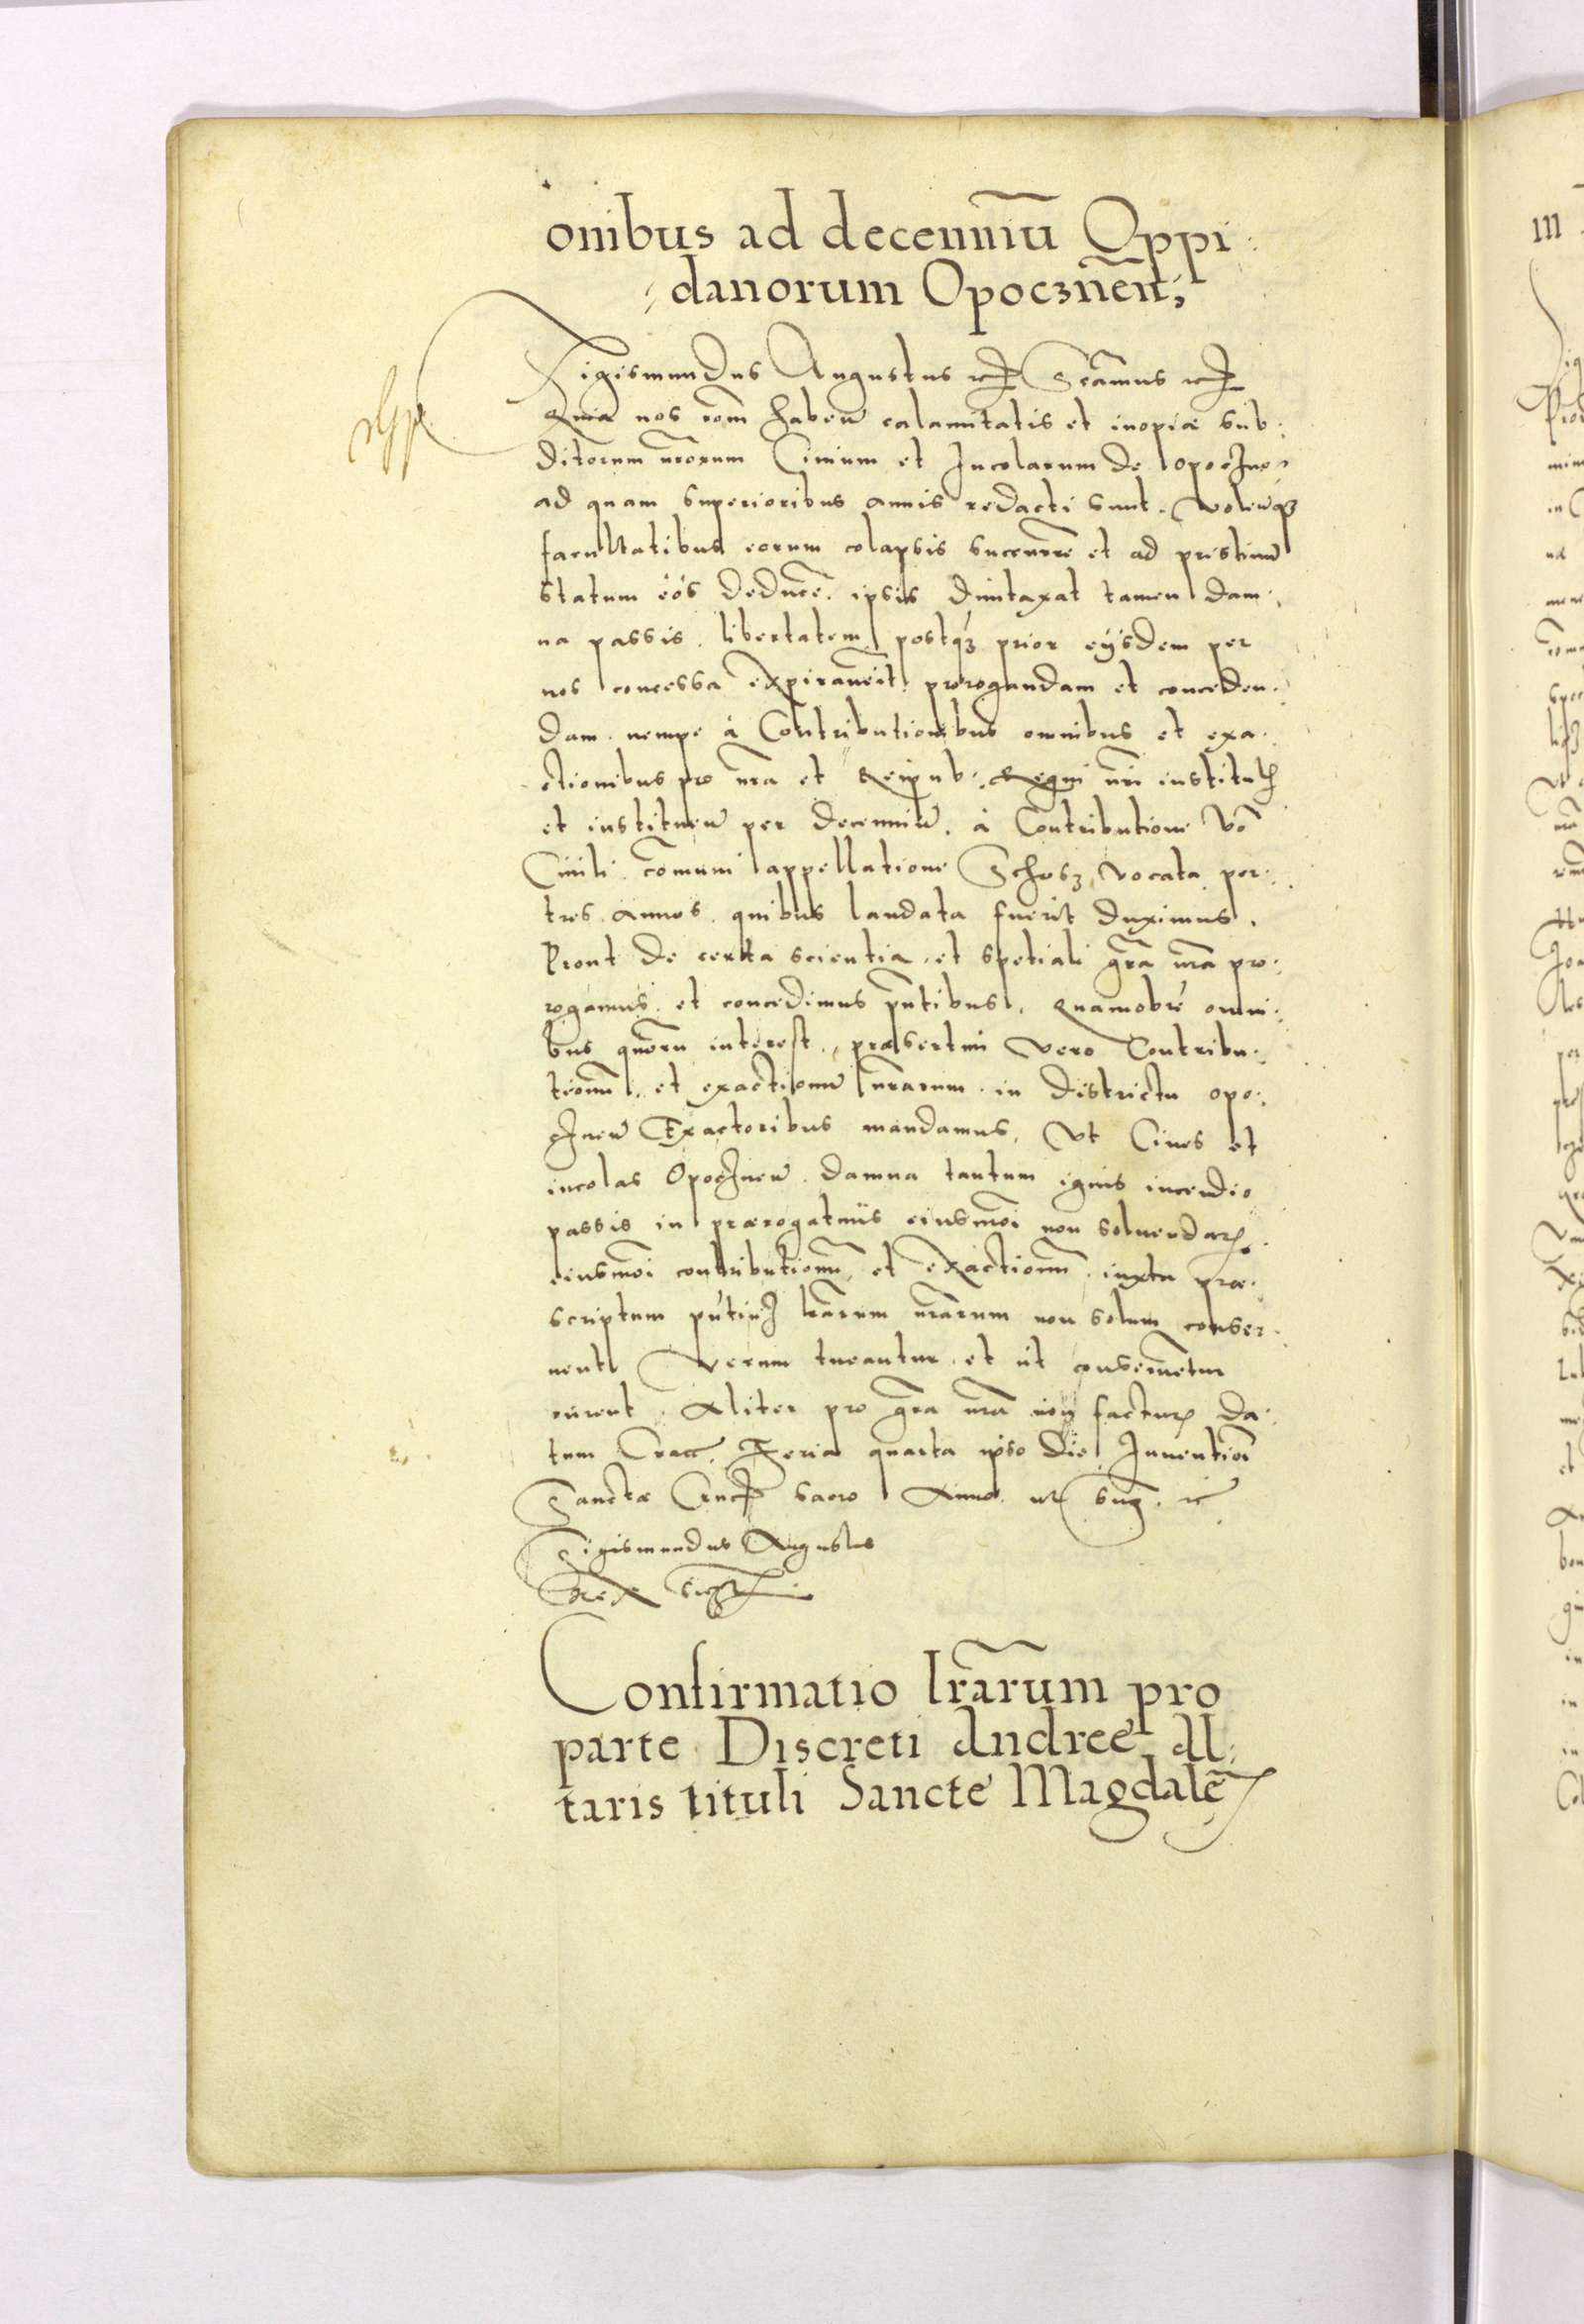 onibus ad decenniū Oppi:
danorum Opocznēn;
Sigismundus Augustus rc Scām̄us rc
Quia nos rōm habeñ calamitatis et inopiæ sub:
ditorum nr̄orum Ciuium et Incolarum de Opoczno
ad quam superioribus annis redacti sunt. Volen̄qȝ
facultatibus eorum colapsis succurre᷑ et ad pristinū
statum eós deducē. ipsis duntaxat tamen dam:
na passis. libertatem postqȝ prior eysdem per
nos concessa expirauerit prorogandam et conceden:
dam. nempe à Contributionibus omnibus et exa:
ctionibus pro nr̄a et Reipub: Regni nr̄i institutȝ
et instituen̄ per decenniū. à Contributione vō
Ciuili com̄uni appellatione Schosz vocata per:
tres annos quibus laudata fuerit duximus.
Prout de certa scientia et spetiali grā nr̄a pro:
rogamus et concedimus pn̄tibus. Quamobrē omni:
bus quorū interest, præsertim vero Contribu:
tionū et exactionū nr̄arum in districtu opo:
cznen̄ Exactoribus mandamus, Vt Ciues et
incolas Opocznen̄ damna tantum ignis incendio
passis in prærogatiuis eiusmōi non soluendarȝ
eiusmōi contributionū et exactionū iuxta præ:
scriptum pn̄tiuȝ lrārum nr̄arum non solum conser:
uent Verum tueantur et út conseruetur
curent. Aliter pro grā nr̄a non facturȝ Da:
tum Crac̄. Feria quarta ipso die Inuentiōi
Sanctæ Crucȝ sacro Anno ut sup. rc
Sigismundus Augustus
Rex sszt
Confirmatio lr̄arum pro
parte Discreti Andreę Al:
taris tituli Sanctę Magdalē